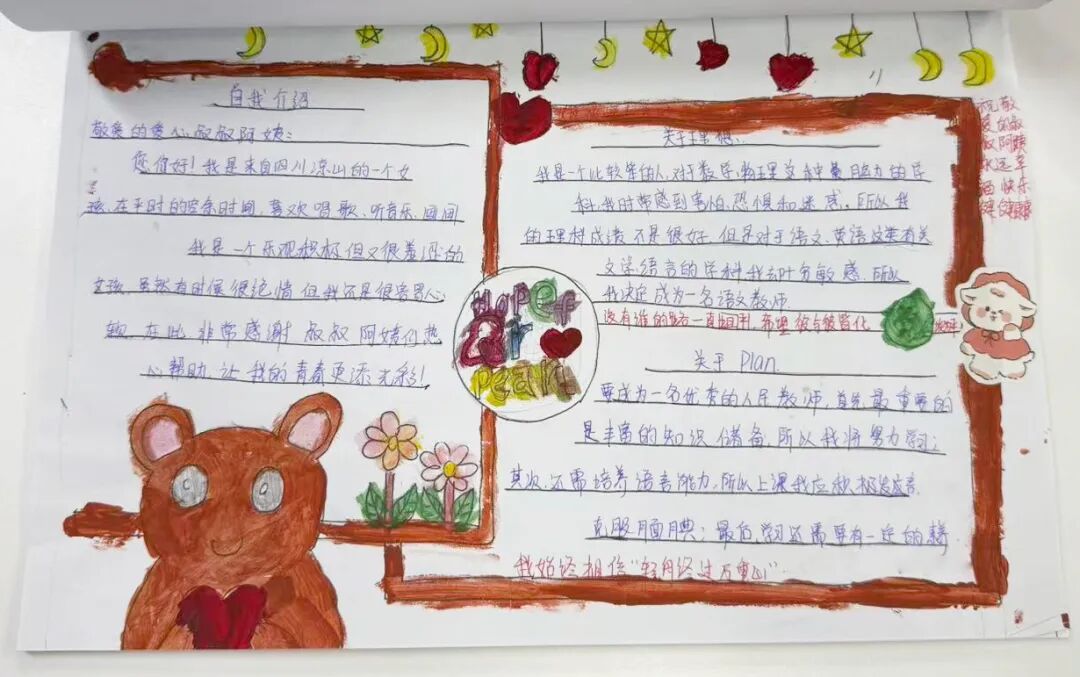 自我介绍
敬爱的爱心叔叔阿姨：
您你好！我是来自四川凉山的一个女
孩，在平时的空余时间，喜欢唱歌、听音乐、画画
我是一个乐观积极但又很羞涩的
女孩，虽然有时候很绝情但我还是很容易心
软，在此非常感谢叔叔阿姨们热
心帮助，让我的青春更添光彩！
关于理想：
我是一个比较笨的人，对于数学、物理这种量脑力的学
科，我时常感到害怕、恐惧和迷惑，所以我
的理科成绩不是很好，但是对于语文、英语这类有关
文学、语言的学科我会十分敏感，所以
我决定成为一名语文教师
没有谁的路一直顺利，希望彼此
关于 Plan.
要成为一名优秀的人民教师，首先最重要的
是丰富的知识储备，所以我将努力学习；
其次还需培养语言能力，所以上课我应积极发言
克服腼腆；最后，学习还需要有一定的
我始终相信“轻舟终过万重山”
Hope
peak
祝敬
爱的叔
叔阿姨
永远幸
福快乐
健健康康